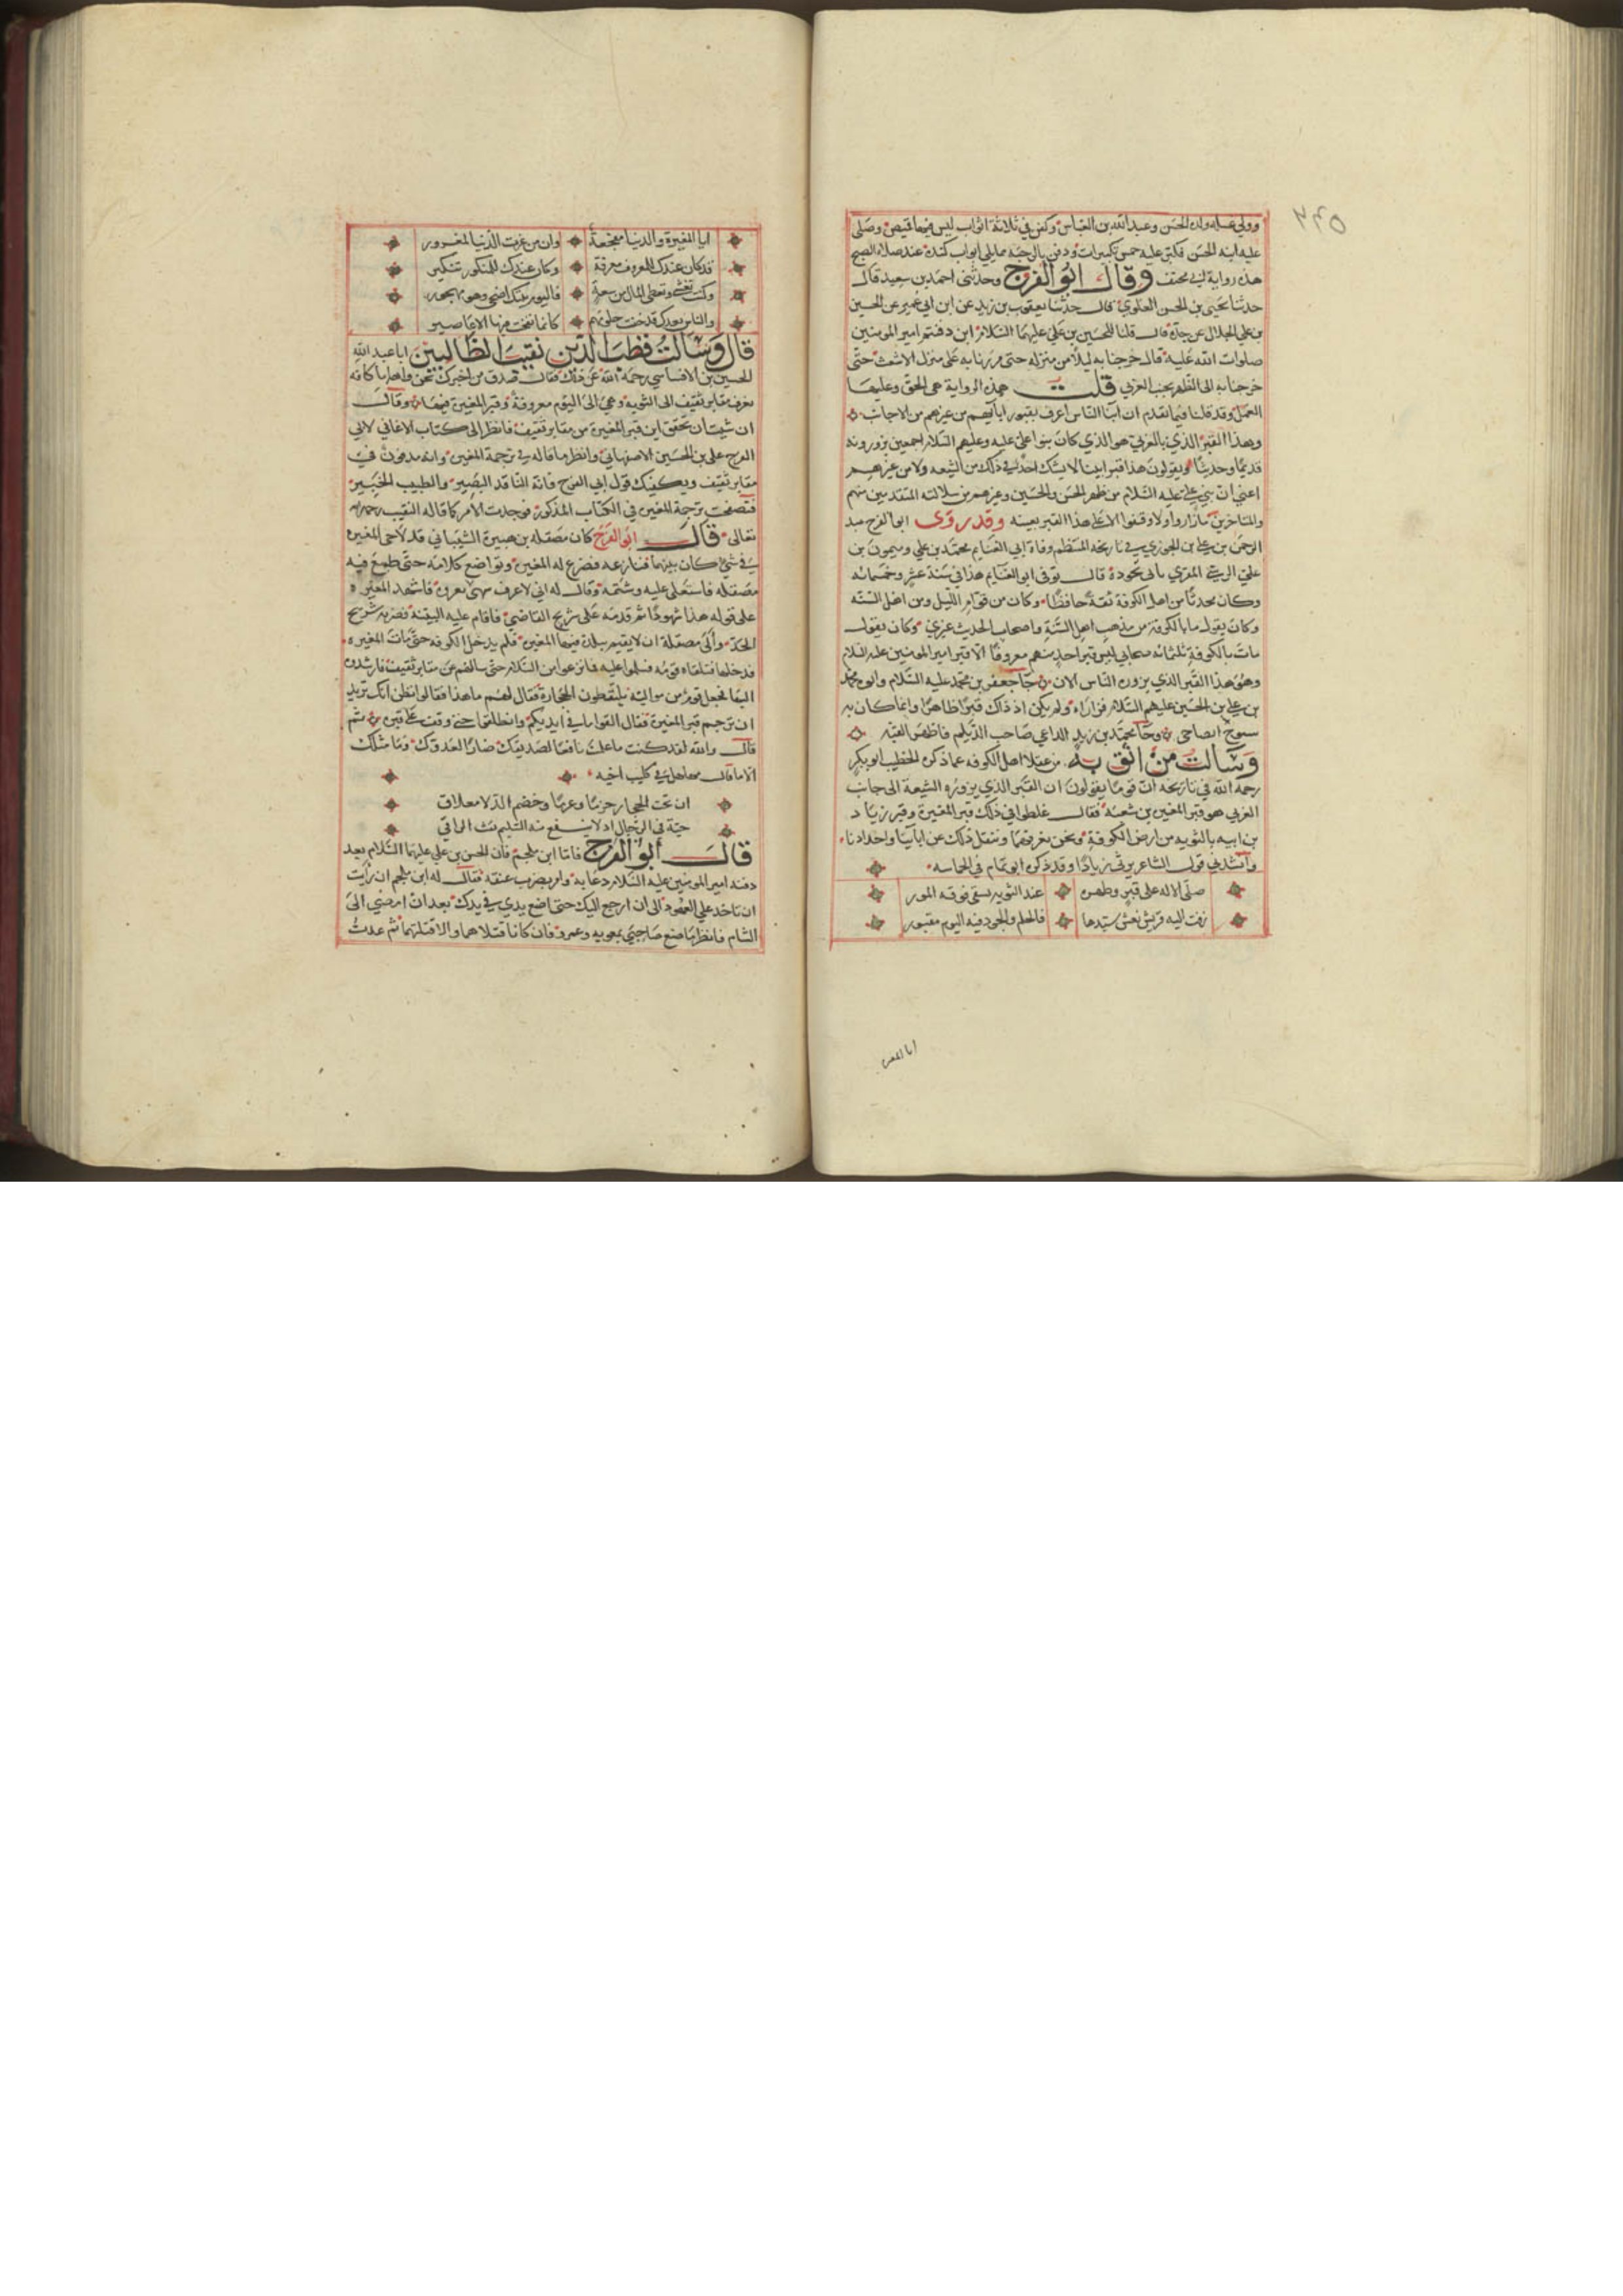 وولي غسله ولده الحسن وعبد الله بن العباس وكفن في ثلاثة اثواب ليس فيها قميص وصلى
عليه ابنه الحسن فكبر عليه خمس تكبيرات ودفن بالرحبة مما يلي ابواب كندة عند صلاة الصبح
هذه رواية ابي مخنف وقال ابو الفرج وحدثني احمد بن سعيد قال
حدثنا يحيى بن الحسن العلوي قال حدثنا يعقوب بن زيد عن ابن ابي عمير عن الحسن
بن علي الخلال عن جده قال قلنا للحسين بن علي عليهما السلام اين دفنتم امير المومنين
صلوات الله عليه قال خرجنا به ليلا من منزله حتى مررنا به على منزل الاشعث حتى
خرجنا به الى الظهر بجنب الغري قلت هذه الرواية هي الحق وعليها
العمل وقد قلنا فيما تقدم ان ابنا الناس اعرف بقبور ابايهم من غيرهم من الاجانب
وهذا القبر الذي بالغري هو الذي كان بنو علي عليه وعليهم السلام اجمعين يزورونه
قديما وحديثا ويقولون هذا قبر ابينا لا يشك احد في ذلك من الشيعه ولا من غيرهم
اعني ان بني علي عليه السلام من ظهر الحسن والحسين وغيرهم من سلالته المتقدمين منهم
والمتاخرين مازاروا ولا وقفوا الا على هذا القبر بعينه وقد روى ابو الفرج عبد
الرحمن بن علي بن الجوزي في تاريخه المنتظم وفاة ابي الغنايم محمد بن علي وميمون بن
علي الرسي المقري بابي بجوده قال توفي ابو الغنايم هذا في سنة عشر وخمسمائه
وكان محدثا من اهل الكوفة ثقة حافظا وكان من قوام الليل ومن اهل السنه
وكان يقول ما بالكوفة من مذهب اهل السنة واصحاب الحديث غيري وكان يقول
مات بالكوفة ثلثمائه صحابي ليس قبر احد منهم معروفا الا قبر امير المومنين عليه السلام
وهو هذا القبر الذي يزوره الناس الان جا جعفر بن محمد عليه السلام وابوه محمد
بن علي بن الحسين عليهم السلام فزاراه ولم يكن اذ ذاك قبرا ظاهرا وانما كان به
سروح ايضا حتى جا محمد بن زيد الداعي صاحب الديلم فاظهر القبه
وسالت من اثق به من عقلا اهل الكوفه عما ذكره الخطيب ابو بكر
رحمه الله في تاريخه ان قوما يقولون ان القبر الذي يزوره الشيعة الى جانب
الغري هو قبر المغيرة بن شعبة فقال غلطوا في ذلك قبر المغيرة وقبر زياد
بن ابيه بالثويه من ارض الكوفة ونحن نعرفهما وننقل ذلك عن اباينا واجدادنا
وانشدني قول الشاعر يرثي زيادا وقد ذكره ابو تمام في الحماسه
صلى الاله على قبر وطهره عند الثويه يسفى فوقه المور
زفت اليه قريش نعش سيدها فالحلم والجود فيه اليوم مقبور
ابا المغيره
ابا المغيرة والدنيا مفجعة وان من غرت الدنيا لمغرور
قد كان عندك للمعروف معرفة وكان عندك للمنكور تنكير
وكنت تغشى وتعطي المال من سعة فاليوم بيتك اضحى وهو مهجور
والناس بعدك قد خفت حلومهم كانما نفخت فيها الاعاصير
قال وسالت قطب الدين نقيب الطالبيين ابا عبد الله
الحسين بن الاقساسي رحمه الله عن ذلك فقال صدق من اخبرك نحن واهلها كافه
نعرف مقابر ثقيف الى الثويه وهي الى اليوم معروفة وقبر المغيرة فيها وقال
ان شيت ان تحقق ان قبر المغيرة من مقابر ثقيف فانظر الى كتاب الاغاني لابي
الفرج علي بن الحسين الاصبهاني وانظر ما قاله في ترجمة المغيره وانه مدفون في
مقابر ثقيف ويكفيك قول ابي الفرج فانه الناقد البصير والطبيب الخبير
فتصفحت ترجمة المغيره في الكتاب المذكور فوجدت الامر كما قاله النقيب رحمه الله
تعالى قال ابو الفرج كان مصقله بن هبيرة الشيباني قد لاحى المغيره
في شي كان بينهما فنازعه فضرع له المغيره وتواضع كلامه حتى طمع فيه
مصقله فاستعلى عليه وشتمه وقال له اني لاعرف شبهي بعروة فاشهد المغيره
على قوله هذا شهودا ثم قدمه على شريح القاضي فاقام عليه البينة فضربه شريح
الحد والى مصقلة ان لا يقيم ببلدة فيها المغيره فلم يدخل الكوفه حتى مات المغيره
فدخلها فتلقاه قومه فسلموا عليه فما فرغوا من السلام حتى سالهم عن مقابر ثقيف فارشدوه
اليها فجعل قوم من مواليه يلتقطون الحجارة فقال لهم ما هذا فقالوا نظن انك تريد
ان ترجم قبر المغيرة فقال القوا ما في ايديكم وانطلقوا حتى وقف على قبره ثم
قال والله لقد كنت ما علمت نافعا لصديقك ضارا لعدوك وما مثلك
الا ما قال مهلهل في كليب اخيه
ان تحت الحجار حزما وعزما وخصم الد ذا معلاق
حية في الوجار اربد لا ينفع منه السليم نفث الراقي
قال ابو الفرج فاما ابن ملجم فان الحسن بن علي عليهما السلام بعد
دفنه امير المومنين عليه السلام دعا به وامر بضرب عنقه فقال له ابن ملجم ان رايت
ان تاخذ علي العهود الى ان ارجع اليك حتى اضع يدي في يدك بعد ان امضي الى
الشام فانظر ما صنع صاحبي بمعويه وعمرو فان كانا قتلاهما والا قتلتهما ثم عدت